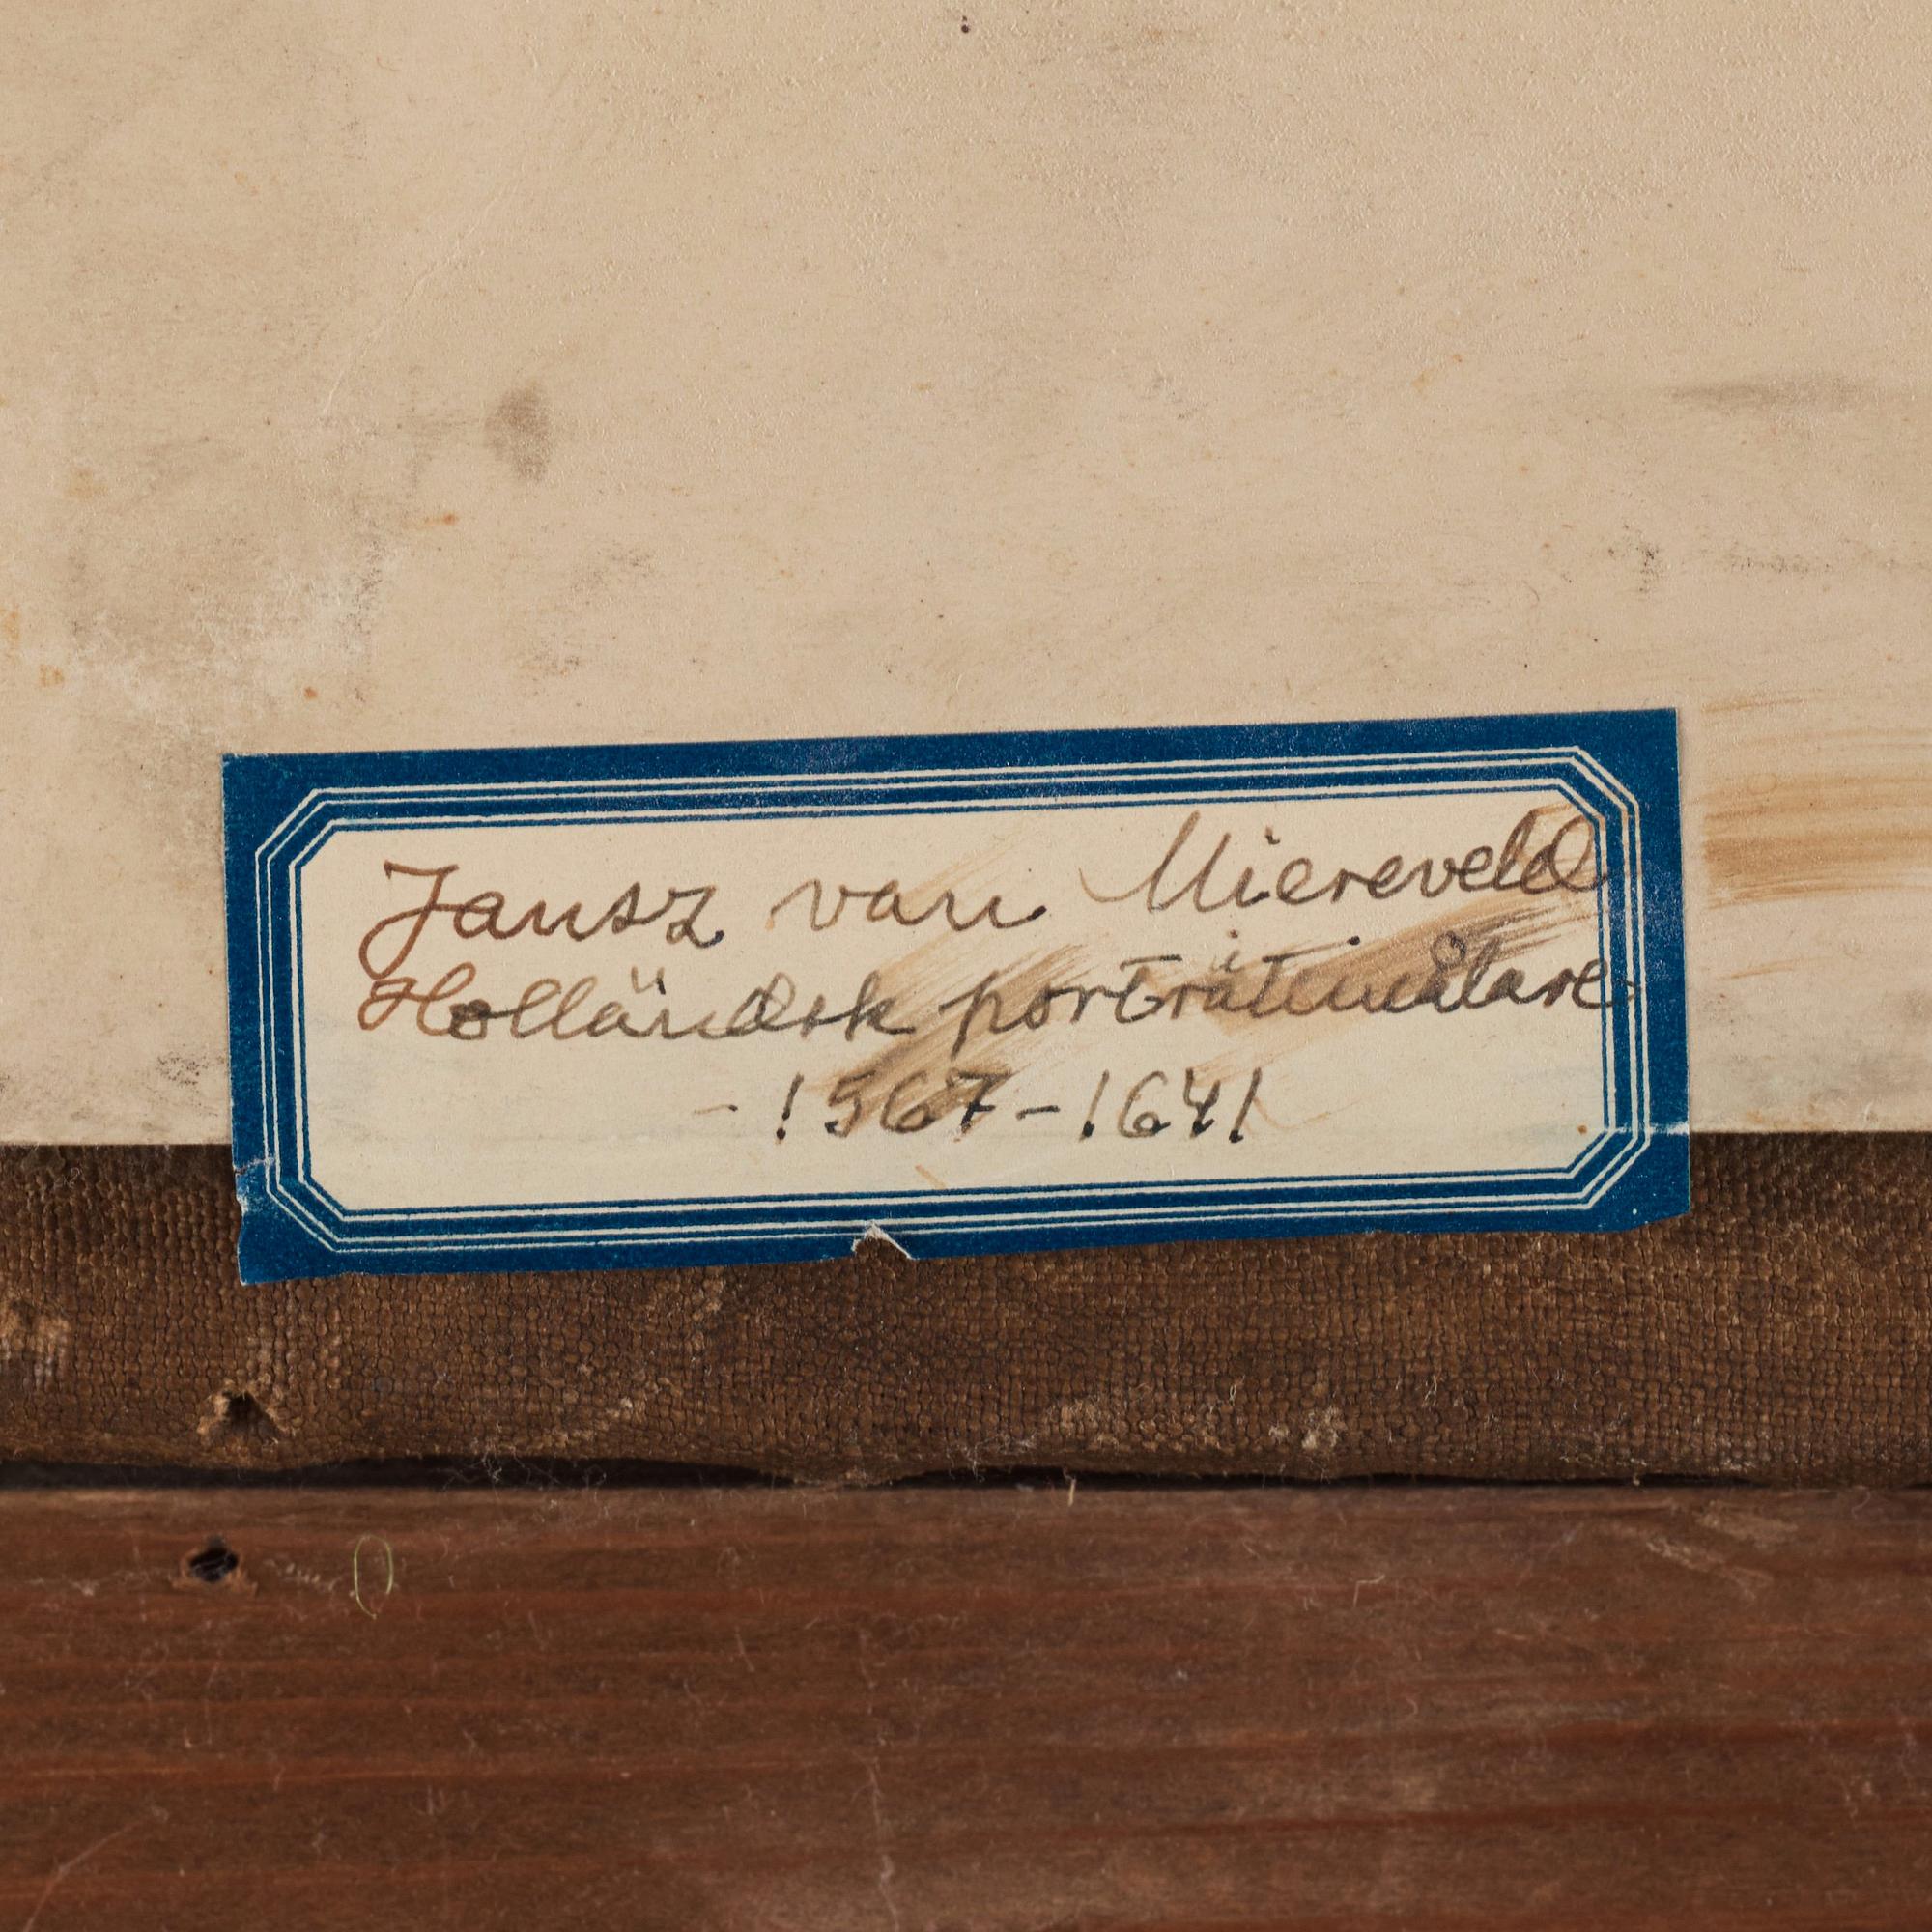 Jansz van Miereveld
Holländsk porträttmålare
- 1567 - 1641